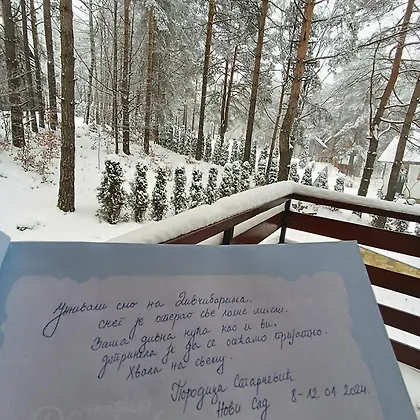 Уживали смо на Дивчибарима.
Снег је отерао све лоше мисли.
Ваша дивна кућа као и ви,
допринела је да се осећамо пријатно.
Хвала на свему.
Породица Старчевић
Нови Сад 8-12.01.2024.